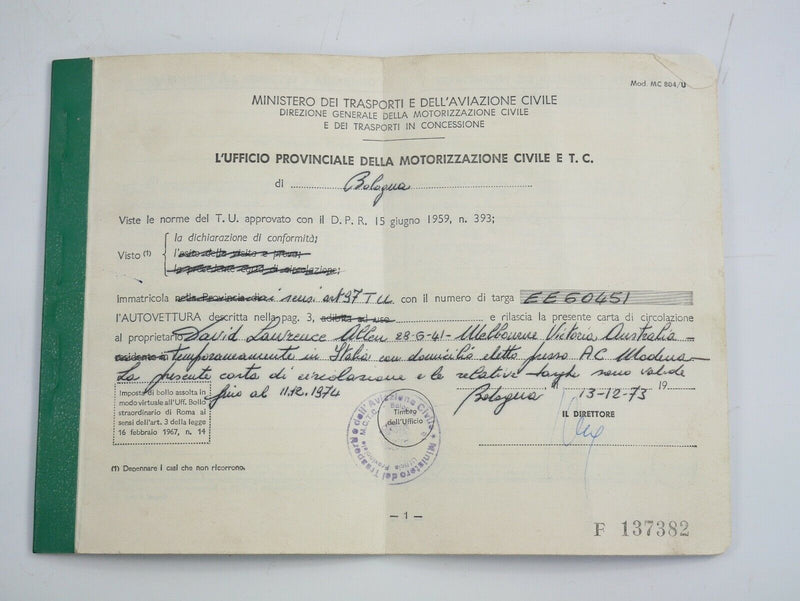 Mod. MC 804/U
MINISTERO DEI TRASPORTI E DELL'AVIAZIONE CIVILE
DIREZIONE GENERALE DELLA MOTORIZZAZIONE CIVILE
E DEI TRASPORTI IN CONCESSIONE
L'UFFICIO PROVINCIALE DELLA MOTORIZZAZIONE CIVILE E T. C.
di Bologna
Viste le norme del T. U. approvato con il D. P. R. 15 giugno 1959, n. 393;
la dichiarazione di conformità;
Visto (1) l'esito della visita e prova;
di circolazione;
Immatricola nella Provincia di sensi art 97 T U con il numero di targa EE60451
l'AUTOVETTURA descritta nella pag. 3, adibita ad uso e rilascia la presente carta di circolazione
al proprietario David Lawrence Allen 28-6-41 - Melbourne Victoria Australia -
residente a temporaneamente in Italia con domicilio eletto presso AC Modena -
La presente carta di circolazione e le relative targhe sono valide
fino al 11.12.1974 Bologna 13-12-73 19
Imposta di bollo assolta in
modo virtuale all'Uff. Bollo
straordinario di Roma ai
sensi dell'art. 3 della legge
16 febbraio 1967, n. 14
Timbro
dell'Ufficio
Ministero dei Trasporti e dell'Aviazione Civile
IL DIRETTORE
(1) Depennare i casi che non ricorrono.
— 1 —
F 137382